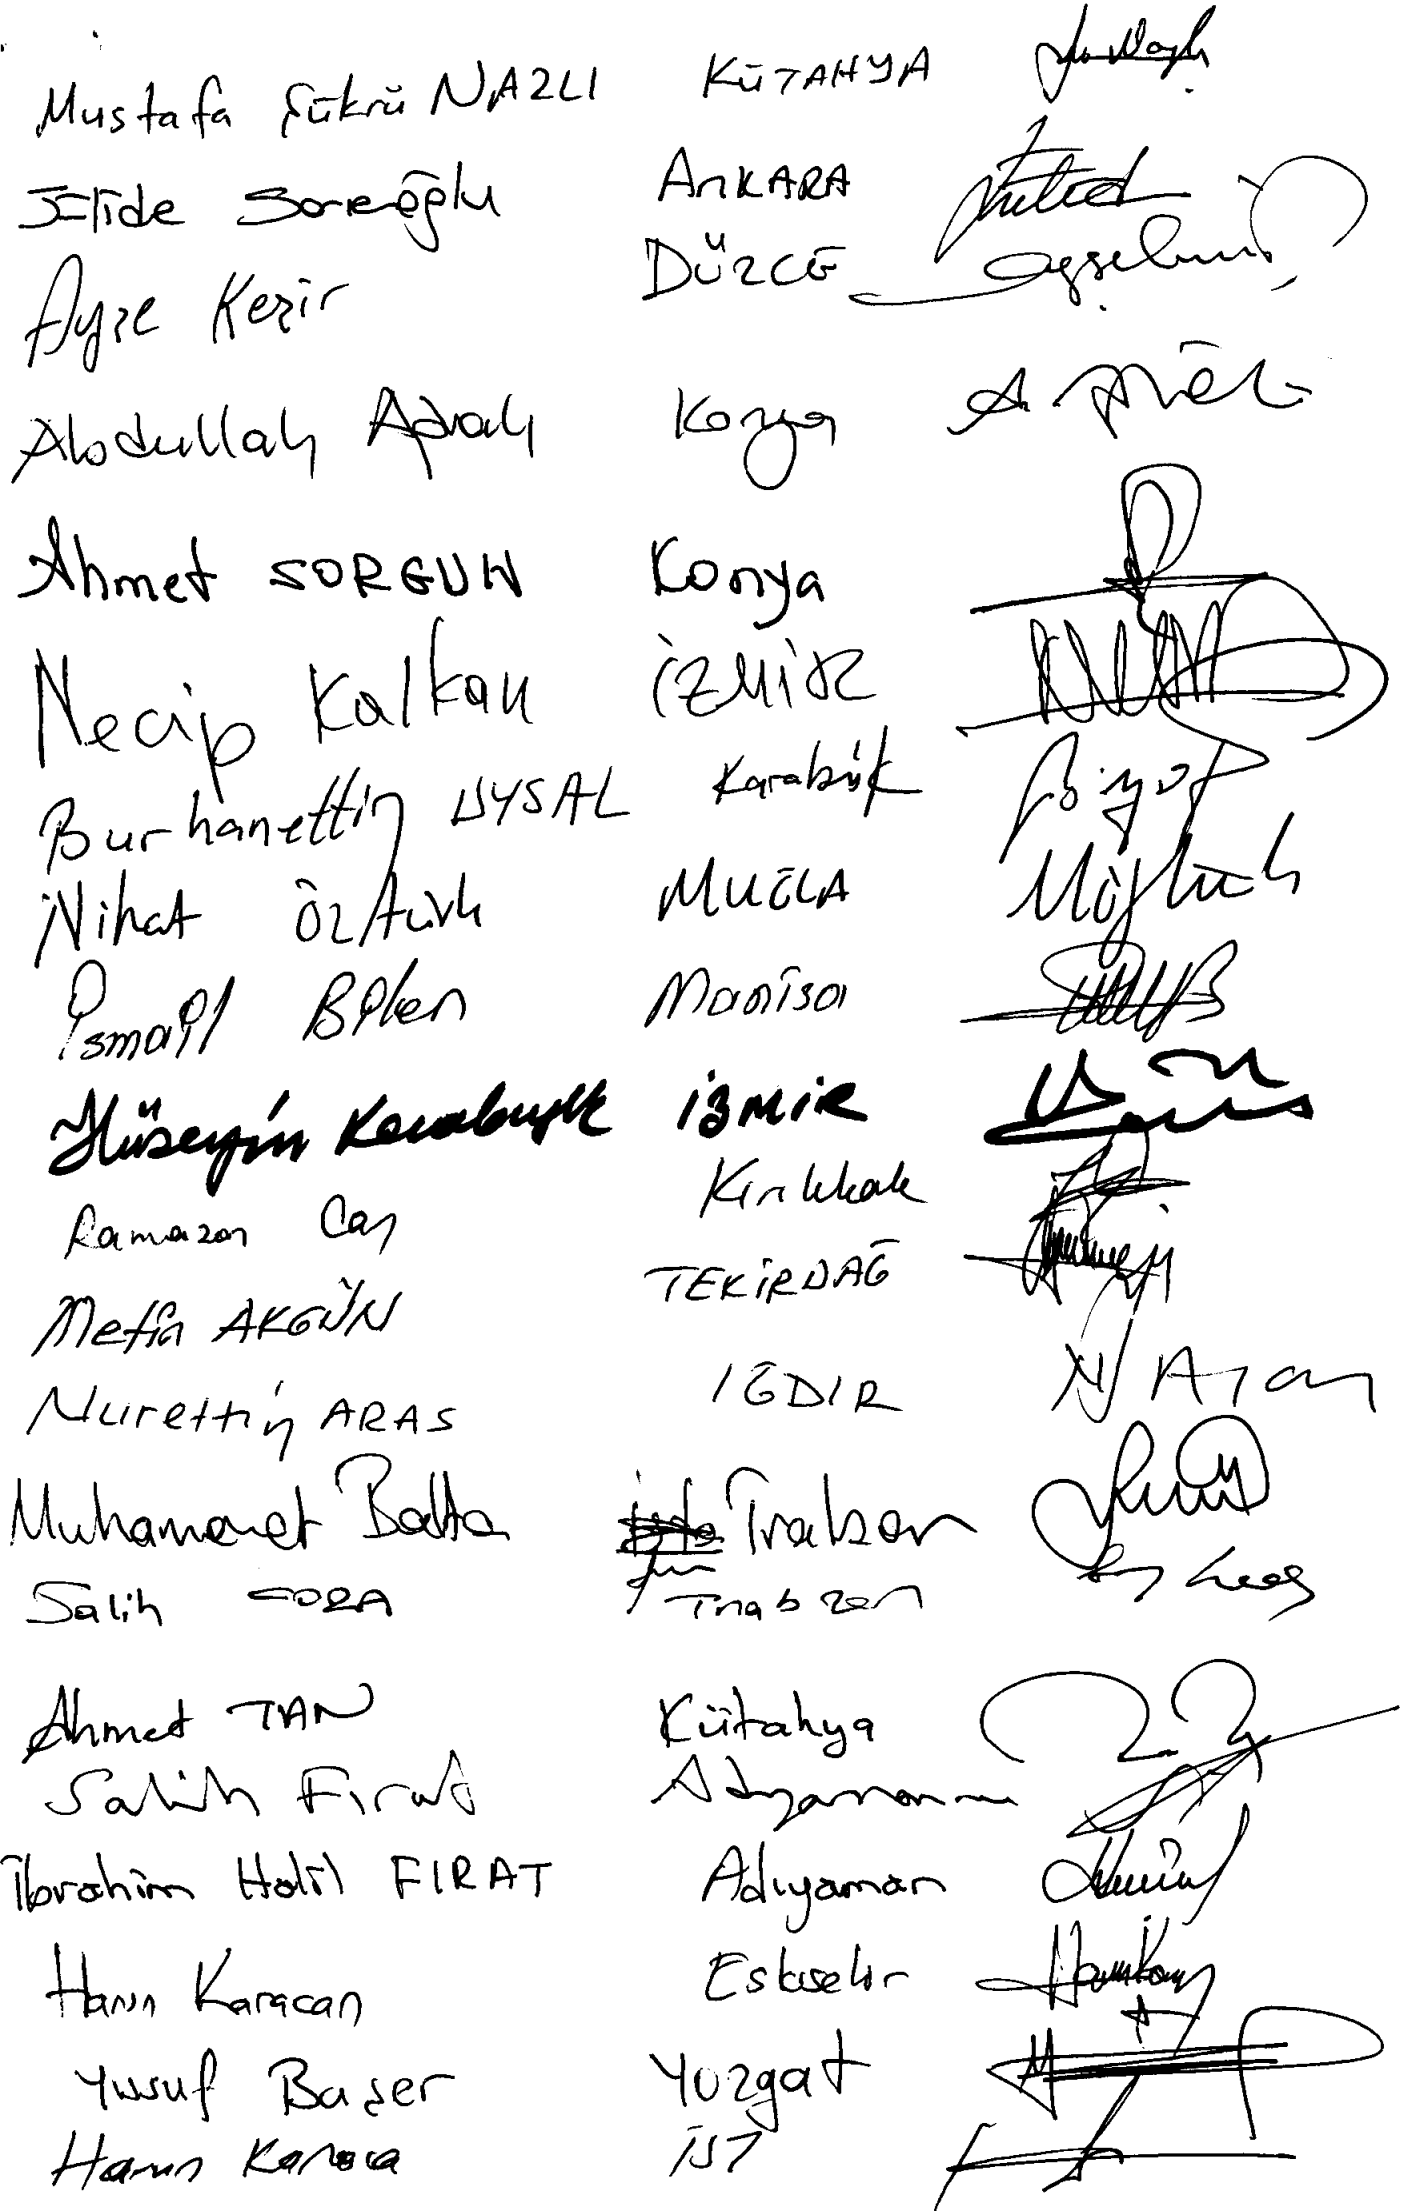 Mustafa Şükrü NAZLI KÜTAHYA
Jülide Sarıeroğlu ANKARA
Ayşe Keşir DÜZCE
Abdullah Ağralı Konya
Ahmet SORGUN Konya
Necip Kalkan İZMİR
Burhanettin UYSAL Karabük
Nihat Öztürk MUĞLA
İsmail Bilen Manisa
Hüseyin Kocabıyık İZMİR
Ramazan Can Kırıkkale
Metin AKGÜN TEKİRDAĞ
Nurettin ARAS IĞDIR N Aras
Muhammet Balta Trabzon
Salih CORA Trabzon
Ahmet TAN Kütahya
Salih Fırat Adıyaman
İbrahim Halil FIRAT Adıyaman
Harun Karacan Eskişehir
Yusuf Başer Yozgat
Harun Karaca İST